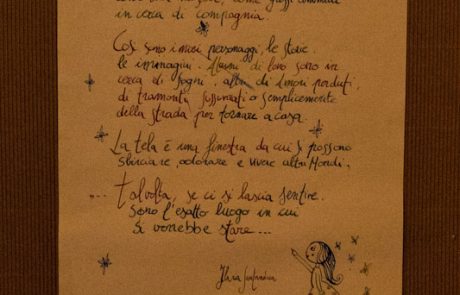 in cerca di compagnia.
Così sono i miei personaggi, le storie,
le immagini. Alcuni di loro sono in
cerca di sogni, altri di amori perduti,
di tramonti sussurrati o semplicemente
della strada per tornare a casa.
La tela è una finestra da cui si possono
sbirciare, odorare e vivere altri Mondi.
... Talvolta, se ci si lascia sentire.
Sono l'esatto luogo in cui
si vorrebbe stare...